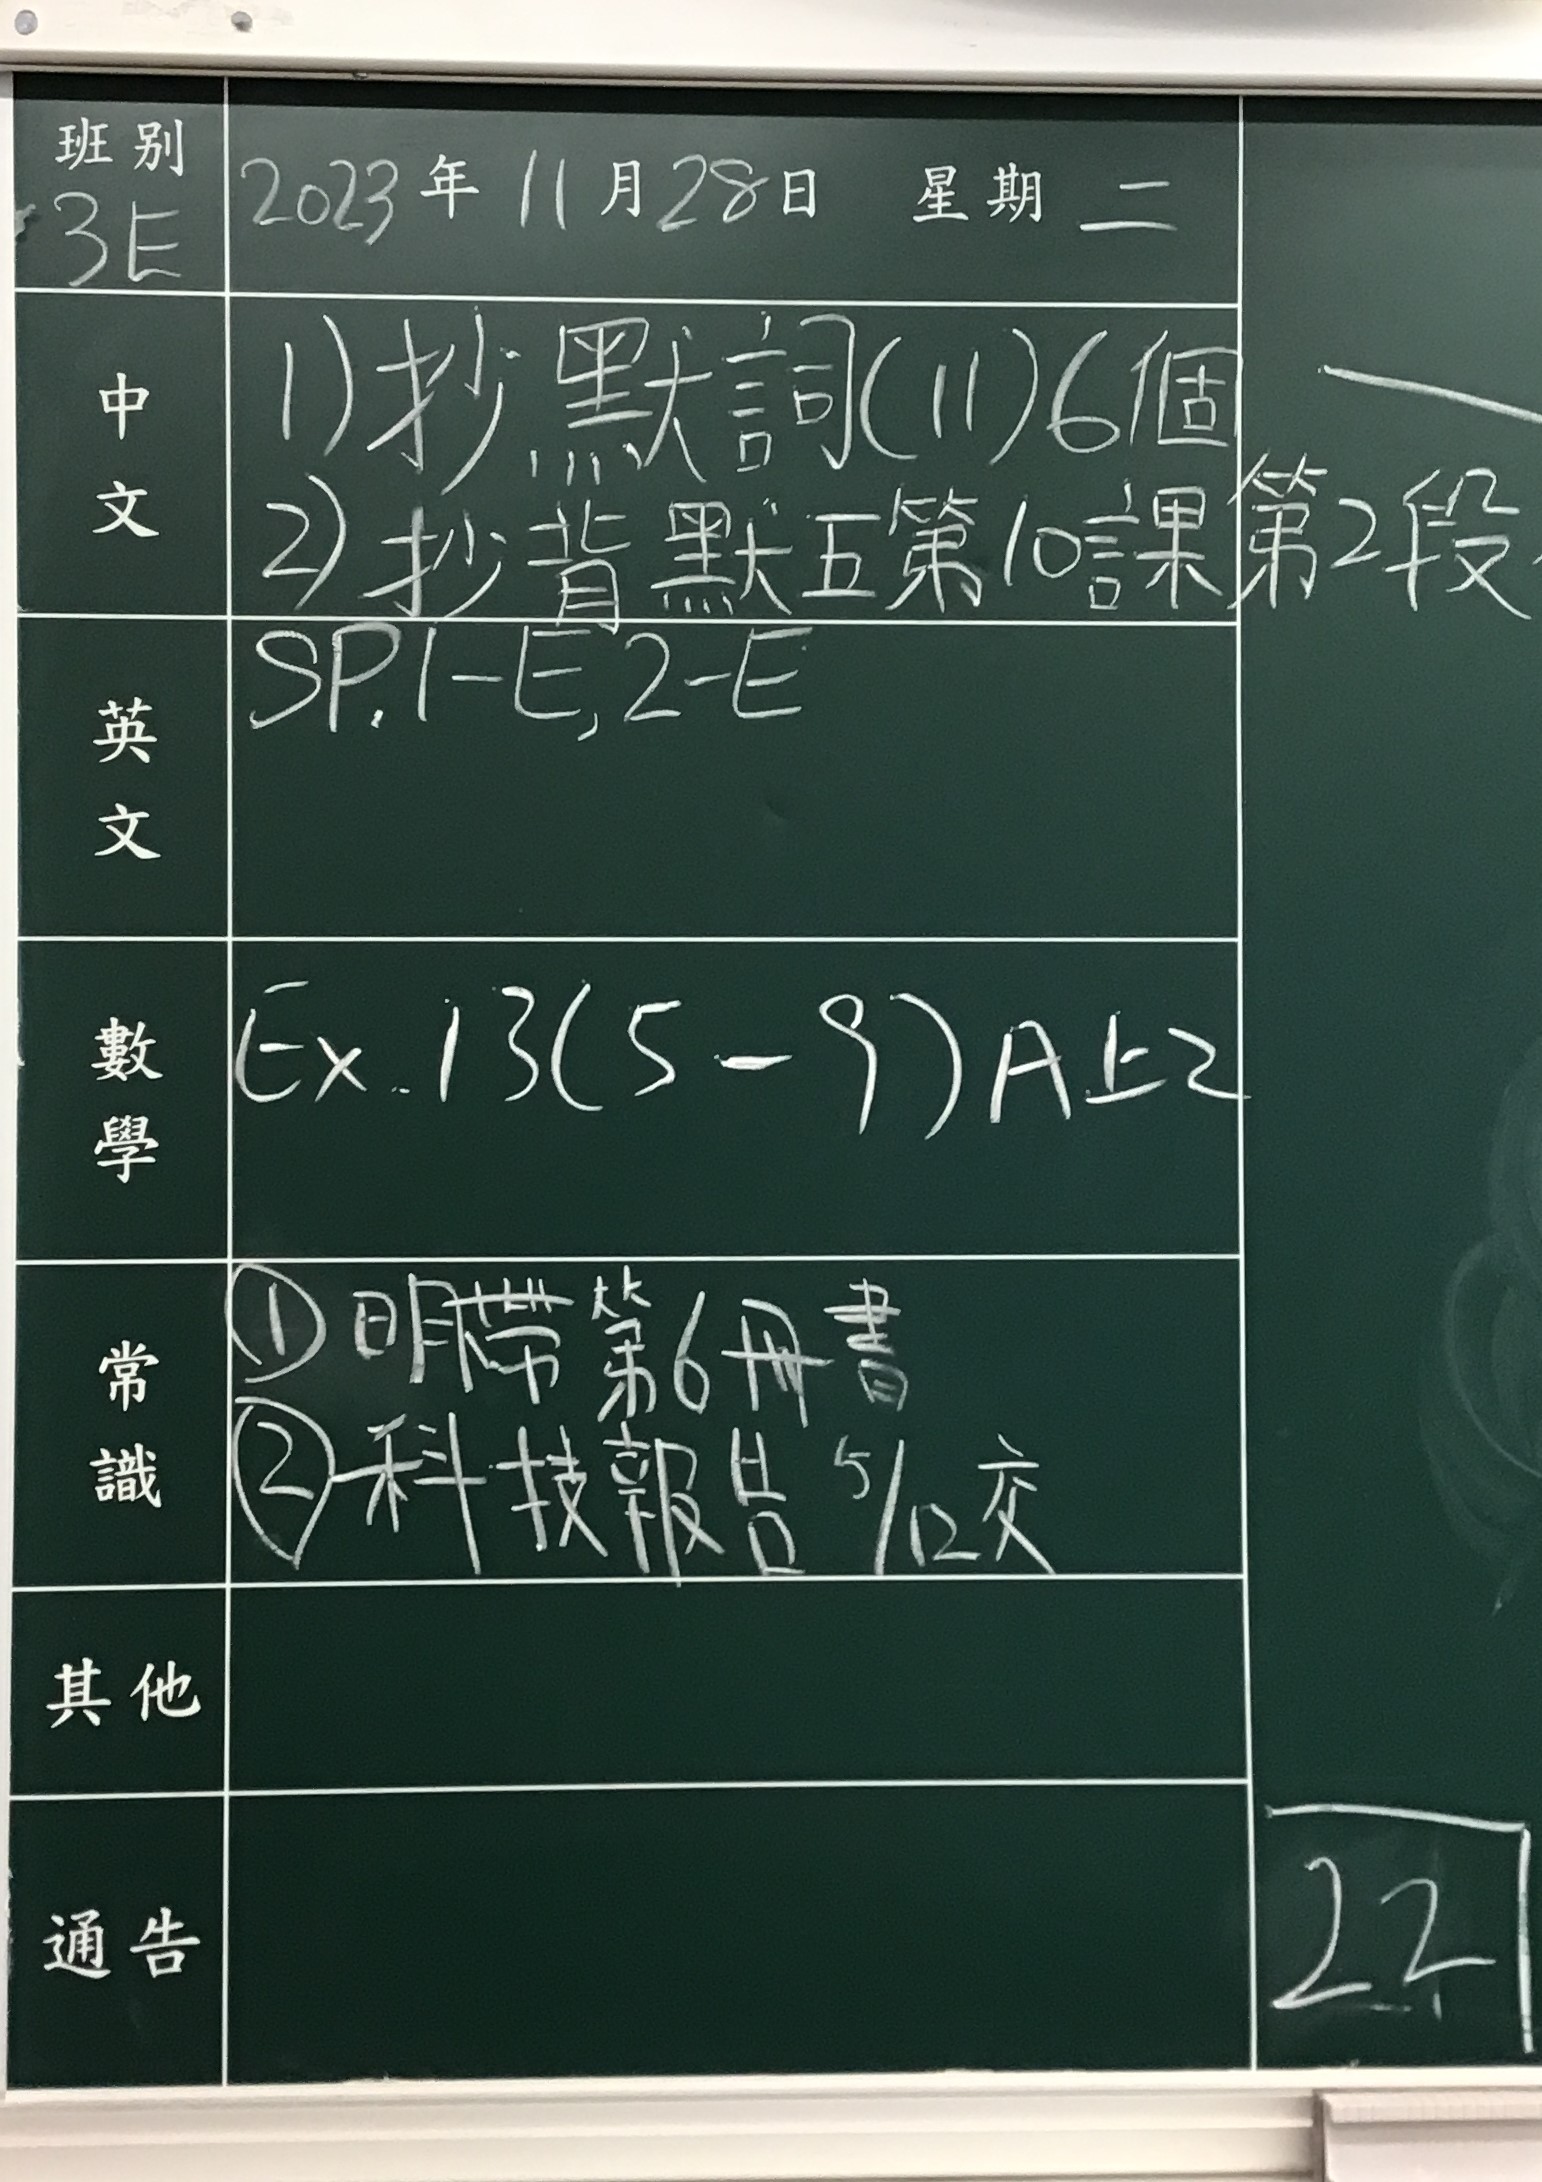 班別
3E
2023年11月28日 星期二
中文
1)抄默詞(11)6個
2)抄背默五第10課第2段
英文
SP.1-E,2-E
數學
Ex.13(5-9)A上2
常識
①明帶第6冊書
②科技報告 5/12交
其他
通告
22